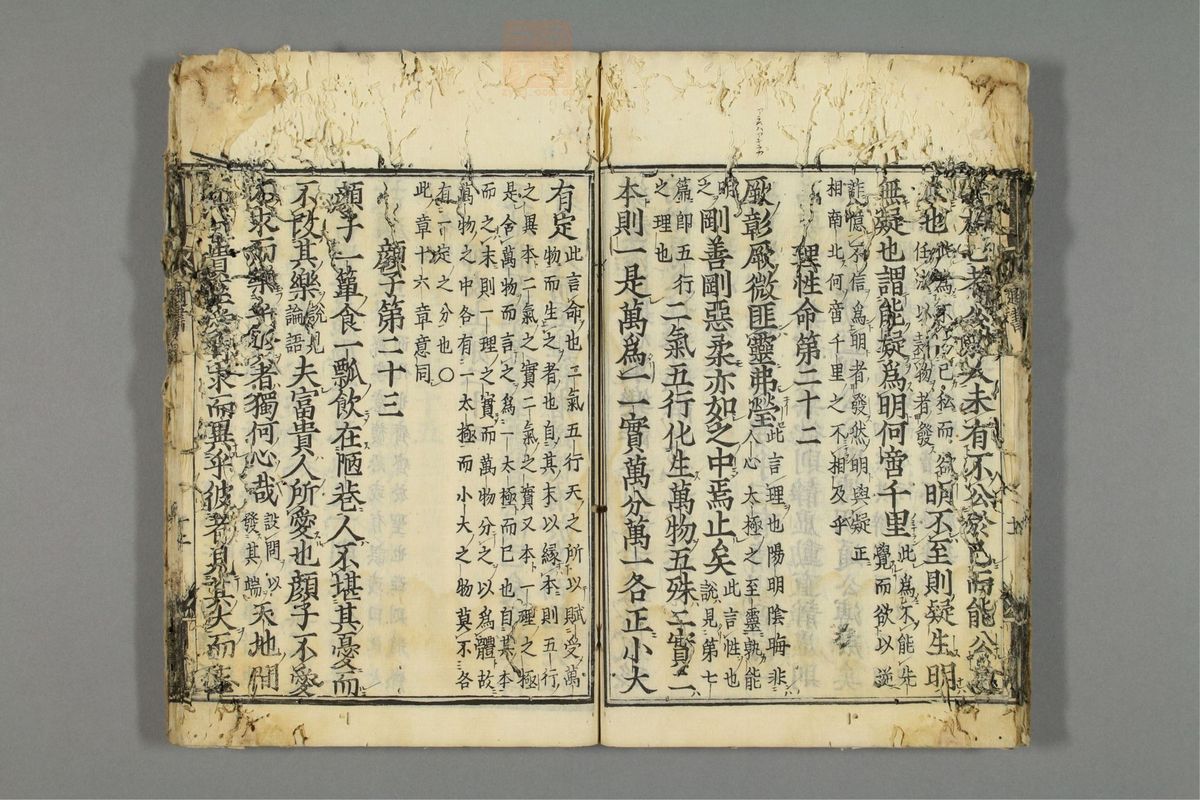 公於己者公於人未有不公於己而能公於
人也此為不勝己私而欲任法以裁物者發明不至則疑生明
無疑也謂能疑為明何啻千里此為不能先覺而欲以逆
詐億不信為明者發然明與疑正
相南北何啻千里之不相及乎
理性命第二十二
厥彰厥微匪靈弗瑩此言理也陽明陰晦非人心太極之至靈孰能
明之剛善剛惡柔亦如之中焉止矣此言性也說見第七
篇即五行之理也二氣五行化生萬物五殊二實二
本則一是萬爲一一實萬分萬一各正小大
有定此言命也二氣五行天之所以賦受萬物而生之者也自其末以緣本則五行
之異本二氣之實二氣之實又本一理之極
是合萬物而言之爲一太極而已也自其本
而之末則一理之實而萬物分之以爲體故
萬物之中各有一太極而小大之物莫不各
有一定之分也〇
此章十六章意同
顏子第二十三
顏子一簞食一瓢飲在陋巷人不堪其憂而
不改其樂說見論語夫富貴人所愛也顏子不愛
不求而樂乎貧者獨何心哉設問以發其端天地間
貴至愛可求而異乎彼者見其大而